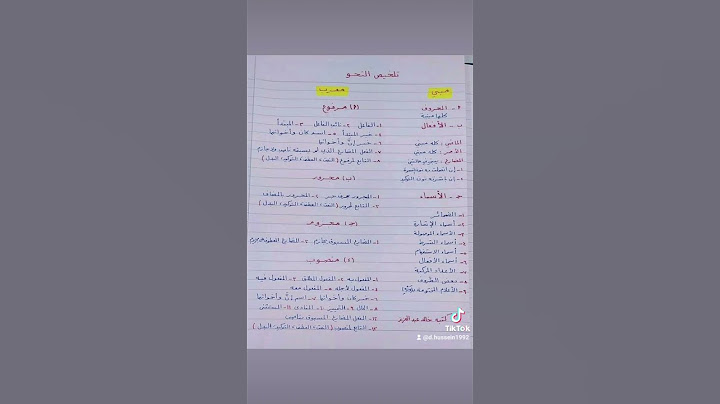 تلخيص النحو
مبني
معرب
أ - الحروف
كلها مبنية
ب - الأفعال
الماضي : كله مبني
الأمر : كله مبني
المضارع : يبنى في حالتين
١- إن اتصلت به نون النسوة
٢- إن باشرته نون التوكيد
ج - الأسماء
١- الضمائر
٢- أسماء الإشارة
٣- الأسماء الموصولة
٤- أسماء الشرط
٥- أسماء الاستفهام
٦- أسماء الأفعال
٧- الأعداد المركبة
٨- بعض الظروف
٩- الأعلام المختومة
كتبه خالد عبد العزيز
(أ) مرفوع
١- الفاعل ٢- نائب الفاعل ٣- المبتدأ
٤- خبر المبتدأ ٥- اسم كان وأخواتها
٦- خبر إنّ وأخواتها
٧- الفعل المضارع الذي لم يسبقه ناصب ولا جازم
٨- التابع لمرفوع ( النعت، العطف، التوكيد، البدل )
(ب) مجرور
١- المجرور بحرف جر ٢- المجرور بالمضاف
٣- التابع لمجرور ( النعت، العطف، التوكيد، البدل )
(جـ) مجزوم
١- المضارع المسبوق بجازم ٢- المضارع المعطوف
(د) منصوب
١- المفعول به ٢- المفعول المطلق ٣- المفعول فيه
٤- المفعول لأجله ٥- المفعول معه
٦- خبر كان وأخواتها ٧- اسم إنّ وأخواتها
٨- الحال ٩- التمييز ١٠- المنادى ١١- المستثنى
١٢- الفعل المضارع المسبوق بناصب
١٣- التابع لمنصوب ( النعت، العطف، التوكيد، البدل )
TikTok
@d.hussein1992